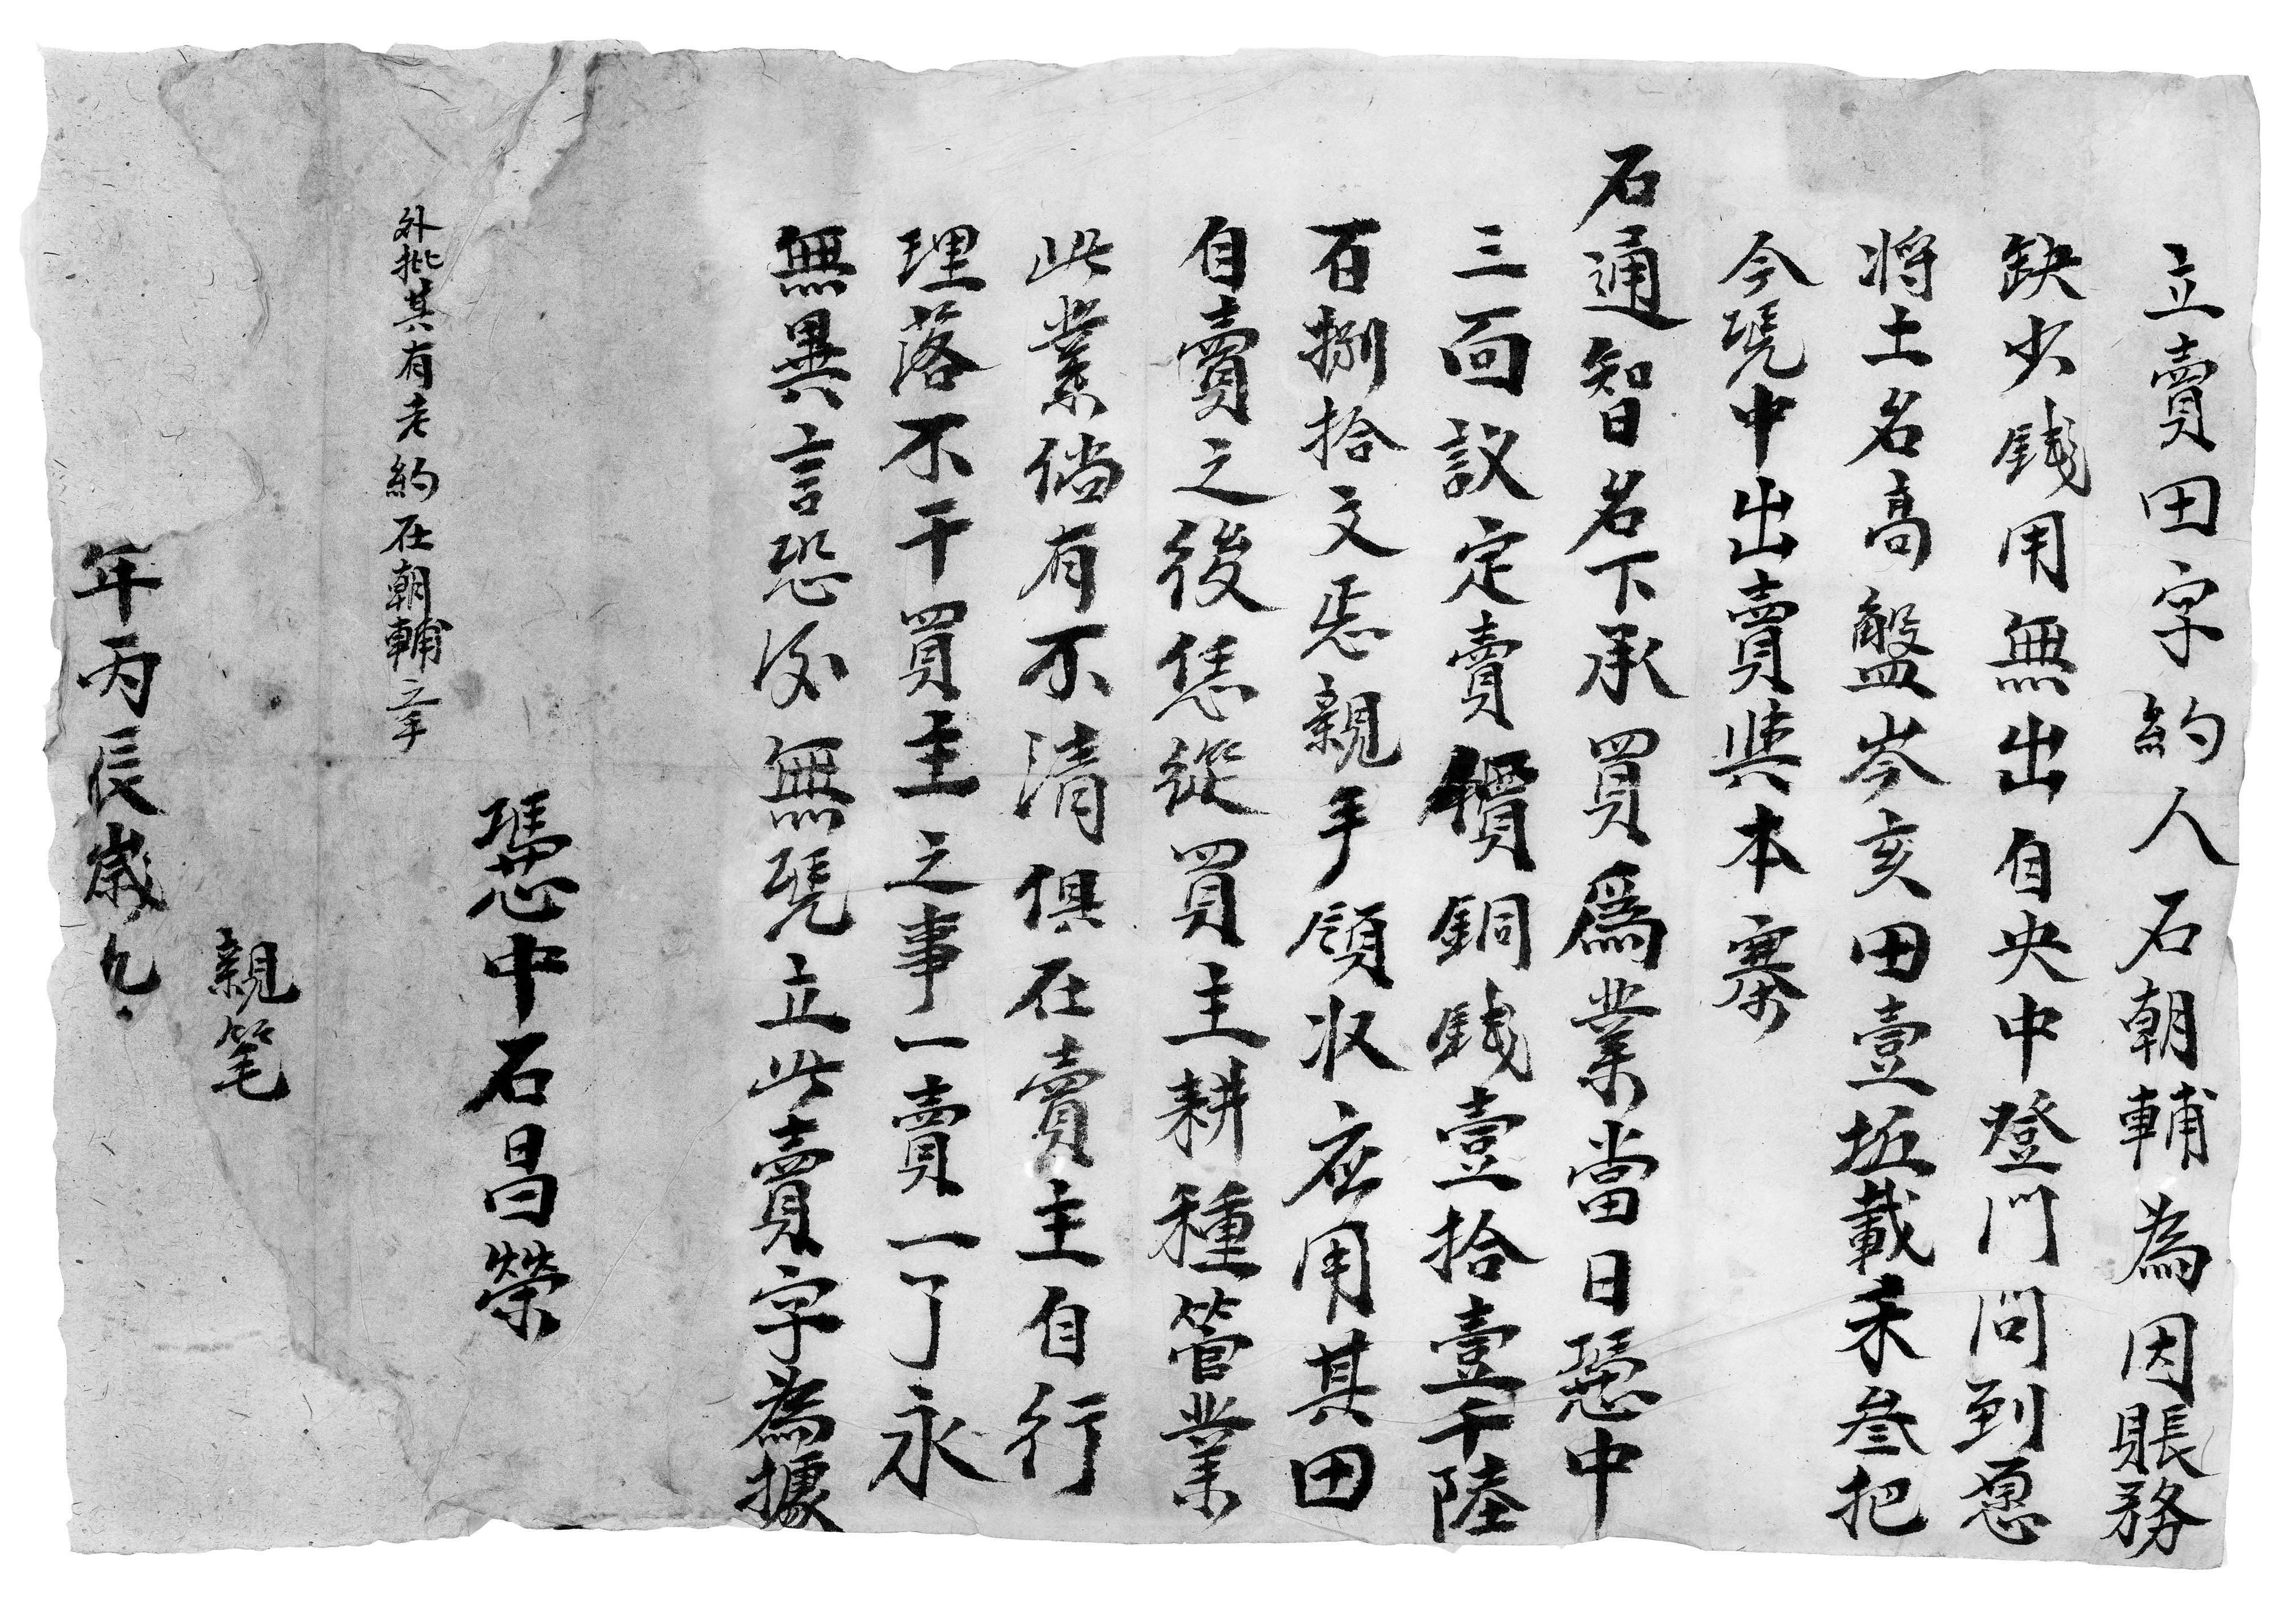 立賣田字約人石朝輔為因賬務
缺少錢用無出自央中登門問到愿
将土名高盤岑亥田壹坵載禾叁把
今凴中出賣與本寨
石通智名下承買爲業當日憑中
三面議定賣價銅錢壹拾壹千陸
百捌拾文乎親手領收应用其田
自賣之後恁從買主耕種管業
此業倘有不清俱在賣主自行
理落不干買主之事一賣一了永
無異言恐後無凴立此賣字為據
憑中石昌榮
外批其有老約在朝輔手
親笔
年丙辰歲九